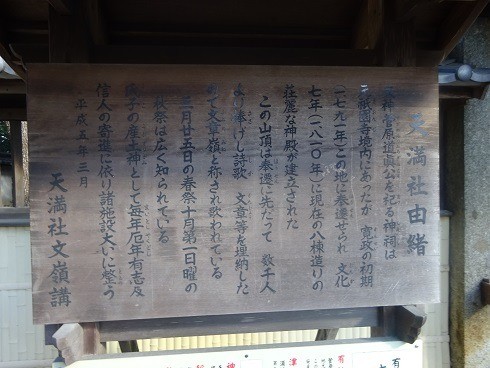 天満社由緒
天神菅原道眞公を祀る神祠は
祇園寺境内にあったが 寛政の初期
(一七九一年)この地に奉遷せられ 文化
七年(一八一〇年)に現在の八棟造りの
荘麗な神殿が建立された
この山頂は奉遷に先だって 数千人
より奉げし詩歌 文章等を埋納した
ので文章嶺と称され歌われている
三月廿五日の春祭十月第一日曜の
秋祭は広く知られている
氏子の産土神として毎年厄年有志及
信人の寄進に依り諸施設大いに整う
平成五年三月
天満社文嶺講